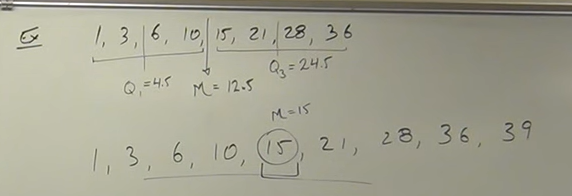 Ex 1, 3, 6, 10, 15, 21, 28, 36
Q₁=4.5 M=12.5 Q₃=24.5
M=15
1, 3, 6, 10, 15, 21, 28, 36, 39